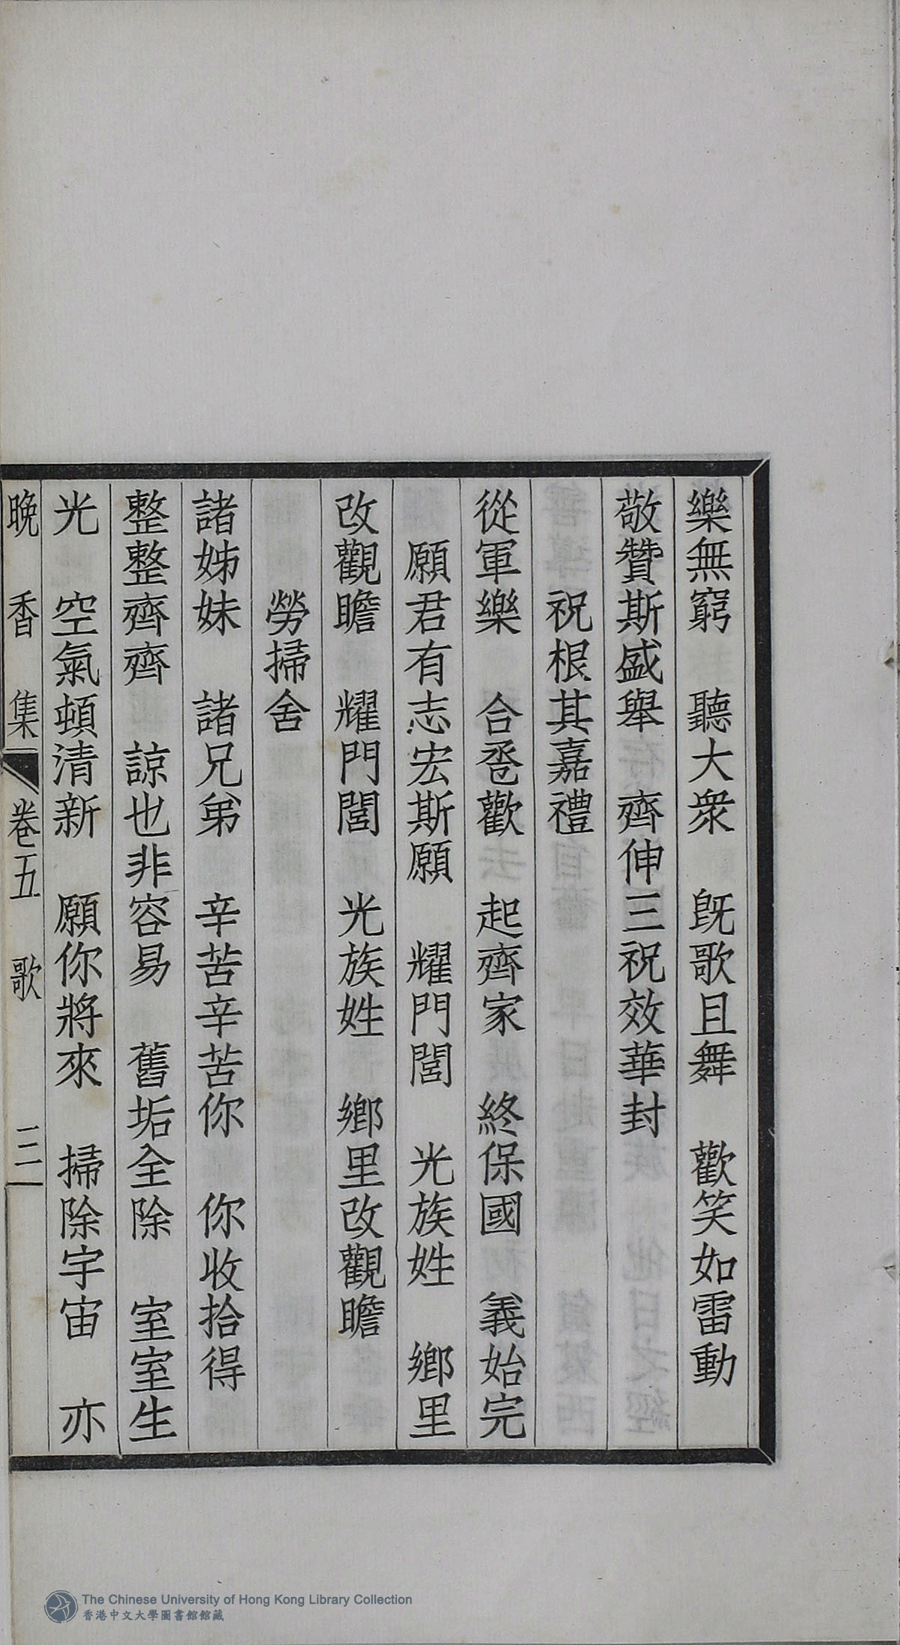 樂無窮　聽大衆　旣歌且舞　歡笑如雷動
敬贊斯盛舉　齊伸三祝效華封
祝根其嘉禮
從軍樂　合卺歡　起齊家　終保國　義始完
願君有志宏斯願　耀門閭　光族姓　鄉里
改觀瞻　耀門閭　光族姓　鄉里改觀瞻
勞掃舍
諸姊妹　諸兄弟　辛苦辛苦你　你收拾得
整整齊齊　諒也非容易　舊垢全除　室室生
光　空氣頓清新　願你將來　掃除宇宙　亦
晚香集　卷五　歌　三
The Chinese University of Hong Kong Library Collection
香港中文大學圖書館館藏